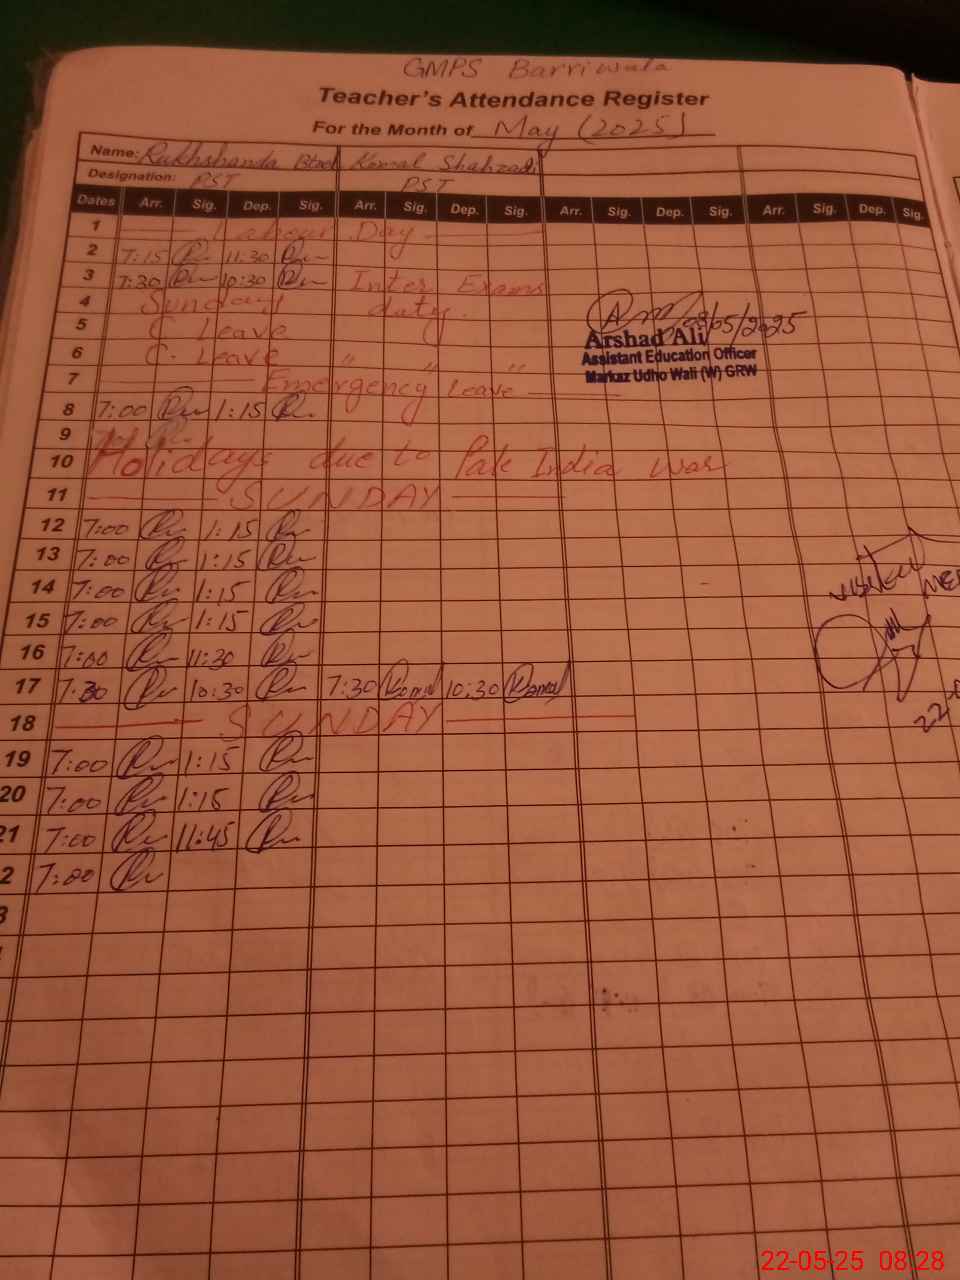 GMPS Barriwala
Teacher's Attendance Register
For the Month of May (2025)
Name: Rukhshanda Komal Shahzadi
Designation: PST PST
Dates Arr. Sig. Dep. Sig. Arr. Sig. Dep. Sig. Arr. Sig. Dep. Sig. Arr. Sig. Dep. Sig.
1 Labour Day
2 7:15 11:30
3 7:30 10:30 Inter Exams
4 Sunday duty.
5 C Leave
6 C. Leave " " "
7 Emergency Leave
08/05/2025
Arshad Ali
Assistant Education Officer
Markaz Udho Wali (W) GRW
8 7:00 1:15
9
10 Holidays due to Pak India war
11 SUNDAY
12 7:00 1:15
13 7:00 1:15
14 7:00 1:15
15 7:00 1:15
16 7:00 11:30
17 7:30 10:30 7:30 Komal 10:30 Komal
18 SUNDAY
19 7:00 1:15
20 7:00 1:15
21 7:00 11:45
2 7:00
3
visited
22-
22-05-25 08:28